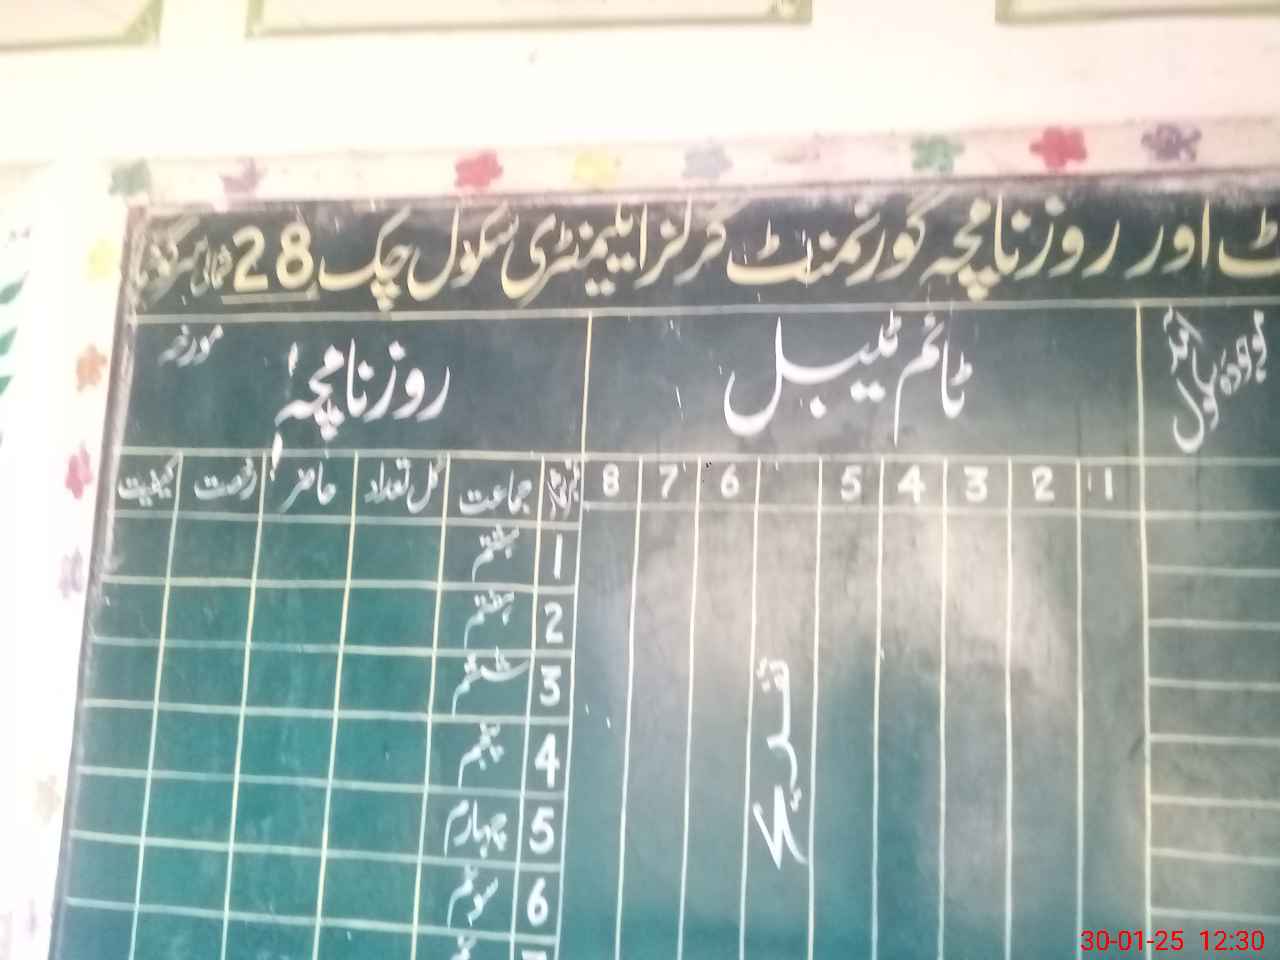 ٹ اور روزنامچہ گورنمنٹ گرلز ایلیمنٹری سکول چک 28 شمالی سرگودھا
موجودہ سکول آمد
ٹائم ٹیبل
روزنامچہ
مورخہ
1 2 3 4 5 6 7 8
نمبر شمار جماعت کل تعداد حاضر رخصت کیفیت
تفریح
1 ہشتم
2 ہفتم
3 ششم
4 پنجم
5 چہارم
6 سوئم
7
30-01-25 12:30